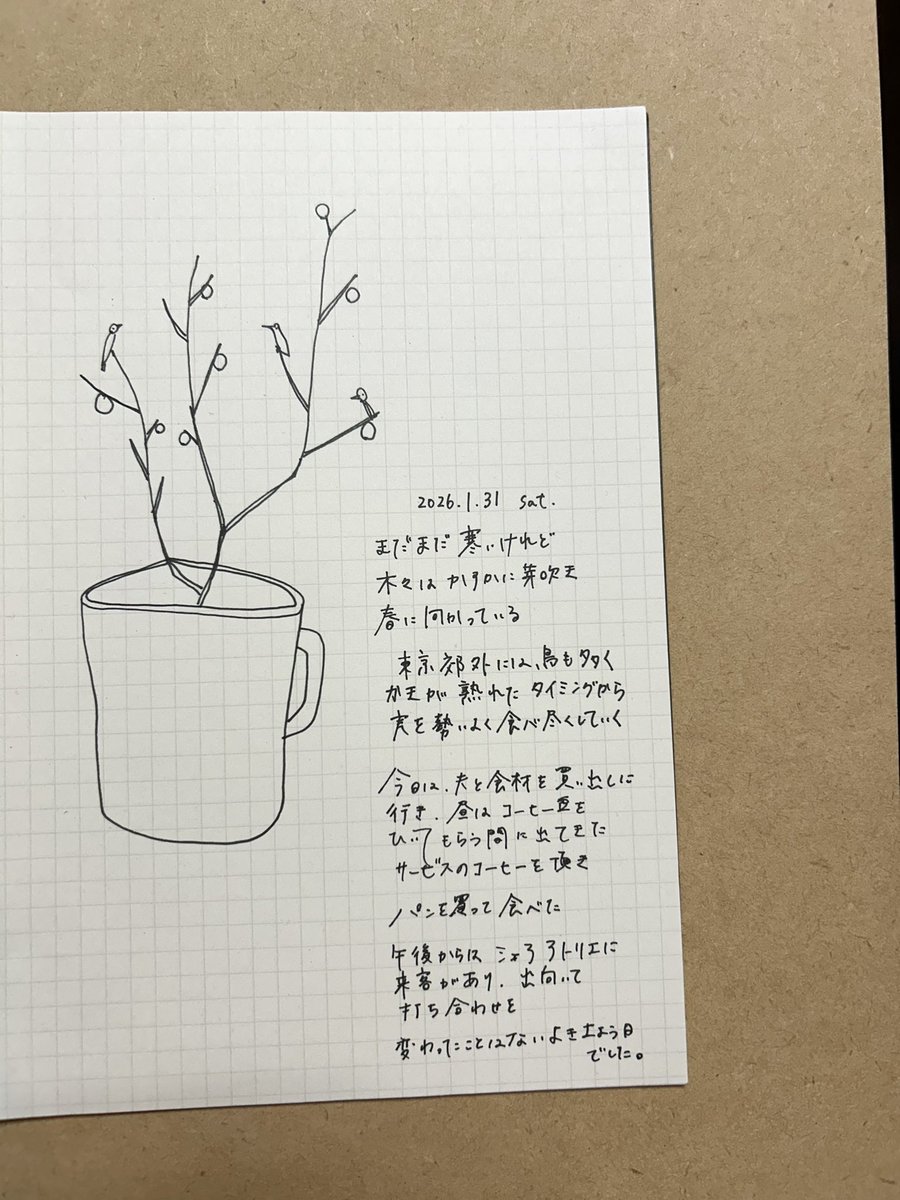 2026.1.31 sat.
まだまだ寒いけれど
木々はかすかに芽吹き
春に向かっている
東京郊外には、鳥も多く
かきが熟れたタイミングから
実を勢いよく食べ尽くしていく
今日は、夫と食材を買い出しに
行き、昼はコーヒー豆を
ひいてもらう間に出てきた
サービスのコーヒーを頂き
パンを買って食べた
午後からは アトリエに
来客があり、出向いて
打ち合わせを
変わったことはないよき土よう日
でした。